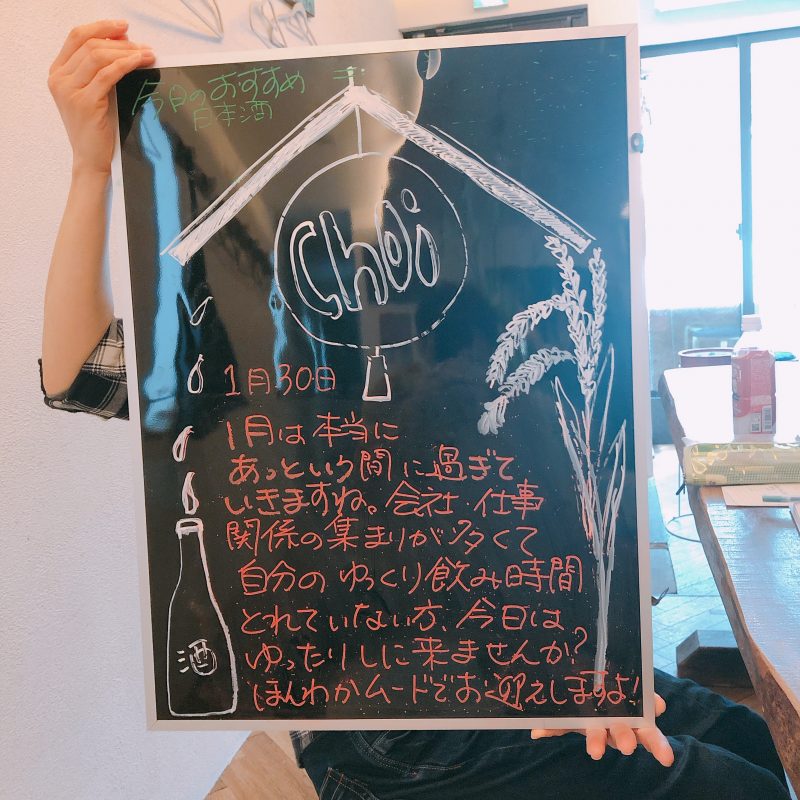 今日のおすすめ
日本酒
choi
1月30日
1月は本当に
あっという間に過ぎて
いきますね。会社 仕事
関係の集まりが多くて
自分のゆっくり飲み時間
とれていない方、今日は
ゆったりしに来ませんか?
ほんわかムードでお迎えしますよ!
酒